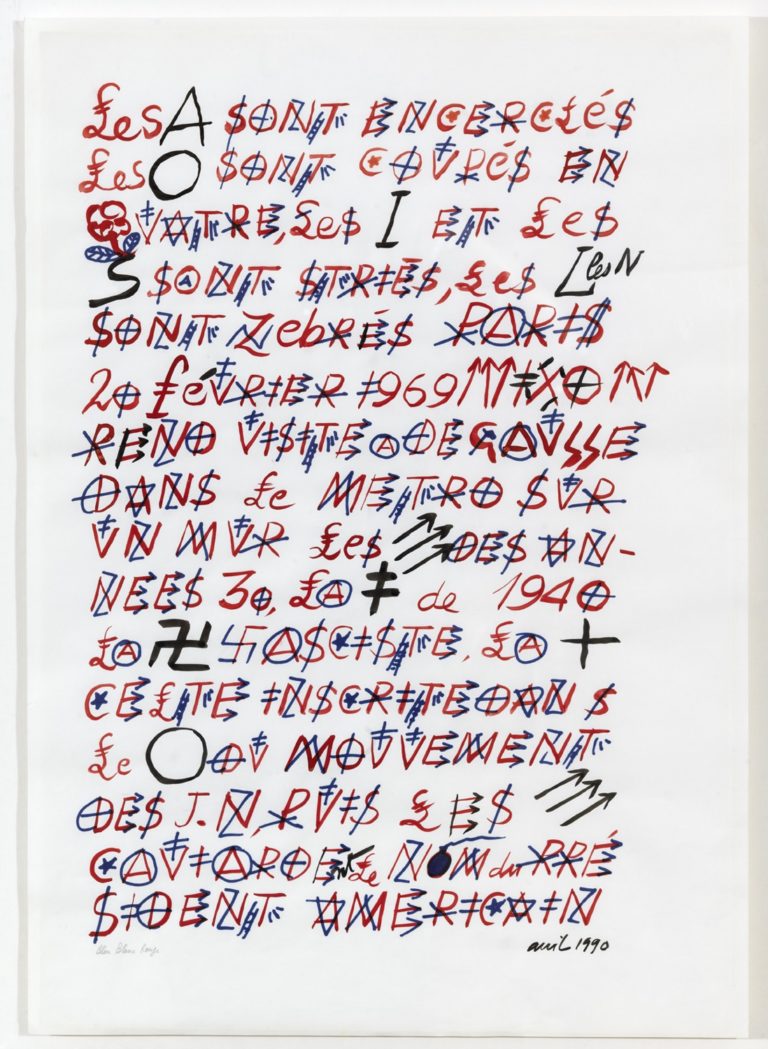 Les A SONT ENCERCLÉS
Les O SONT COUPÉS EN
QUATRE, Les I ET Les
S SONT STRIÉS, Les L les N
SONT ZebRÉS PARIS
20 FÉVRIER 1969 ↑↑↑IXO↑↑↑
REND VISITE A DE GAUϟϟE
DANS Le METRO SUR
UN MUR Les ↗↗↗ DES AN-
NEES 30, LA ‡ de 1940
LA 卍 卐ASCISTE, LA +
CELTE INSCRITE DANS
Le O DU MOUVEMENT
DES J.N, PUIS LES ↗↗↗
CAVIARDENT Le NOM du PRÉ
SIDENT AMERICAIN
Bleu Blanc Rouge
avril 1990